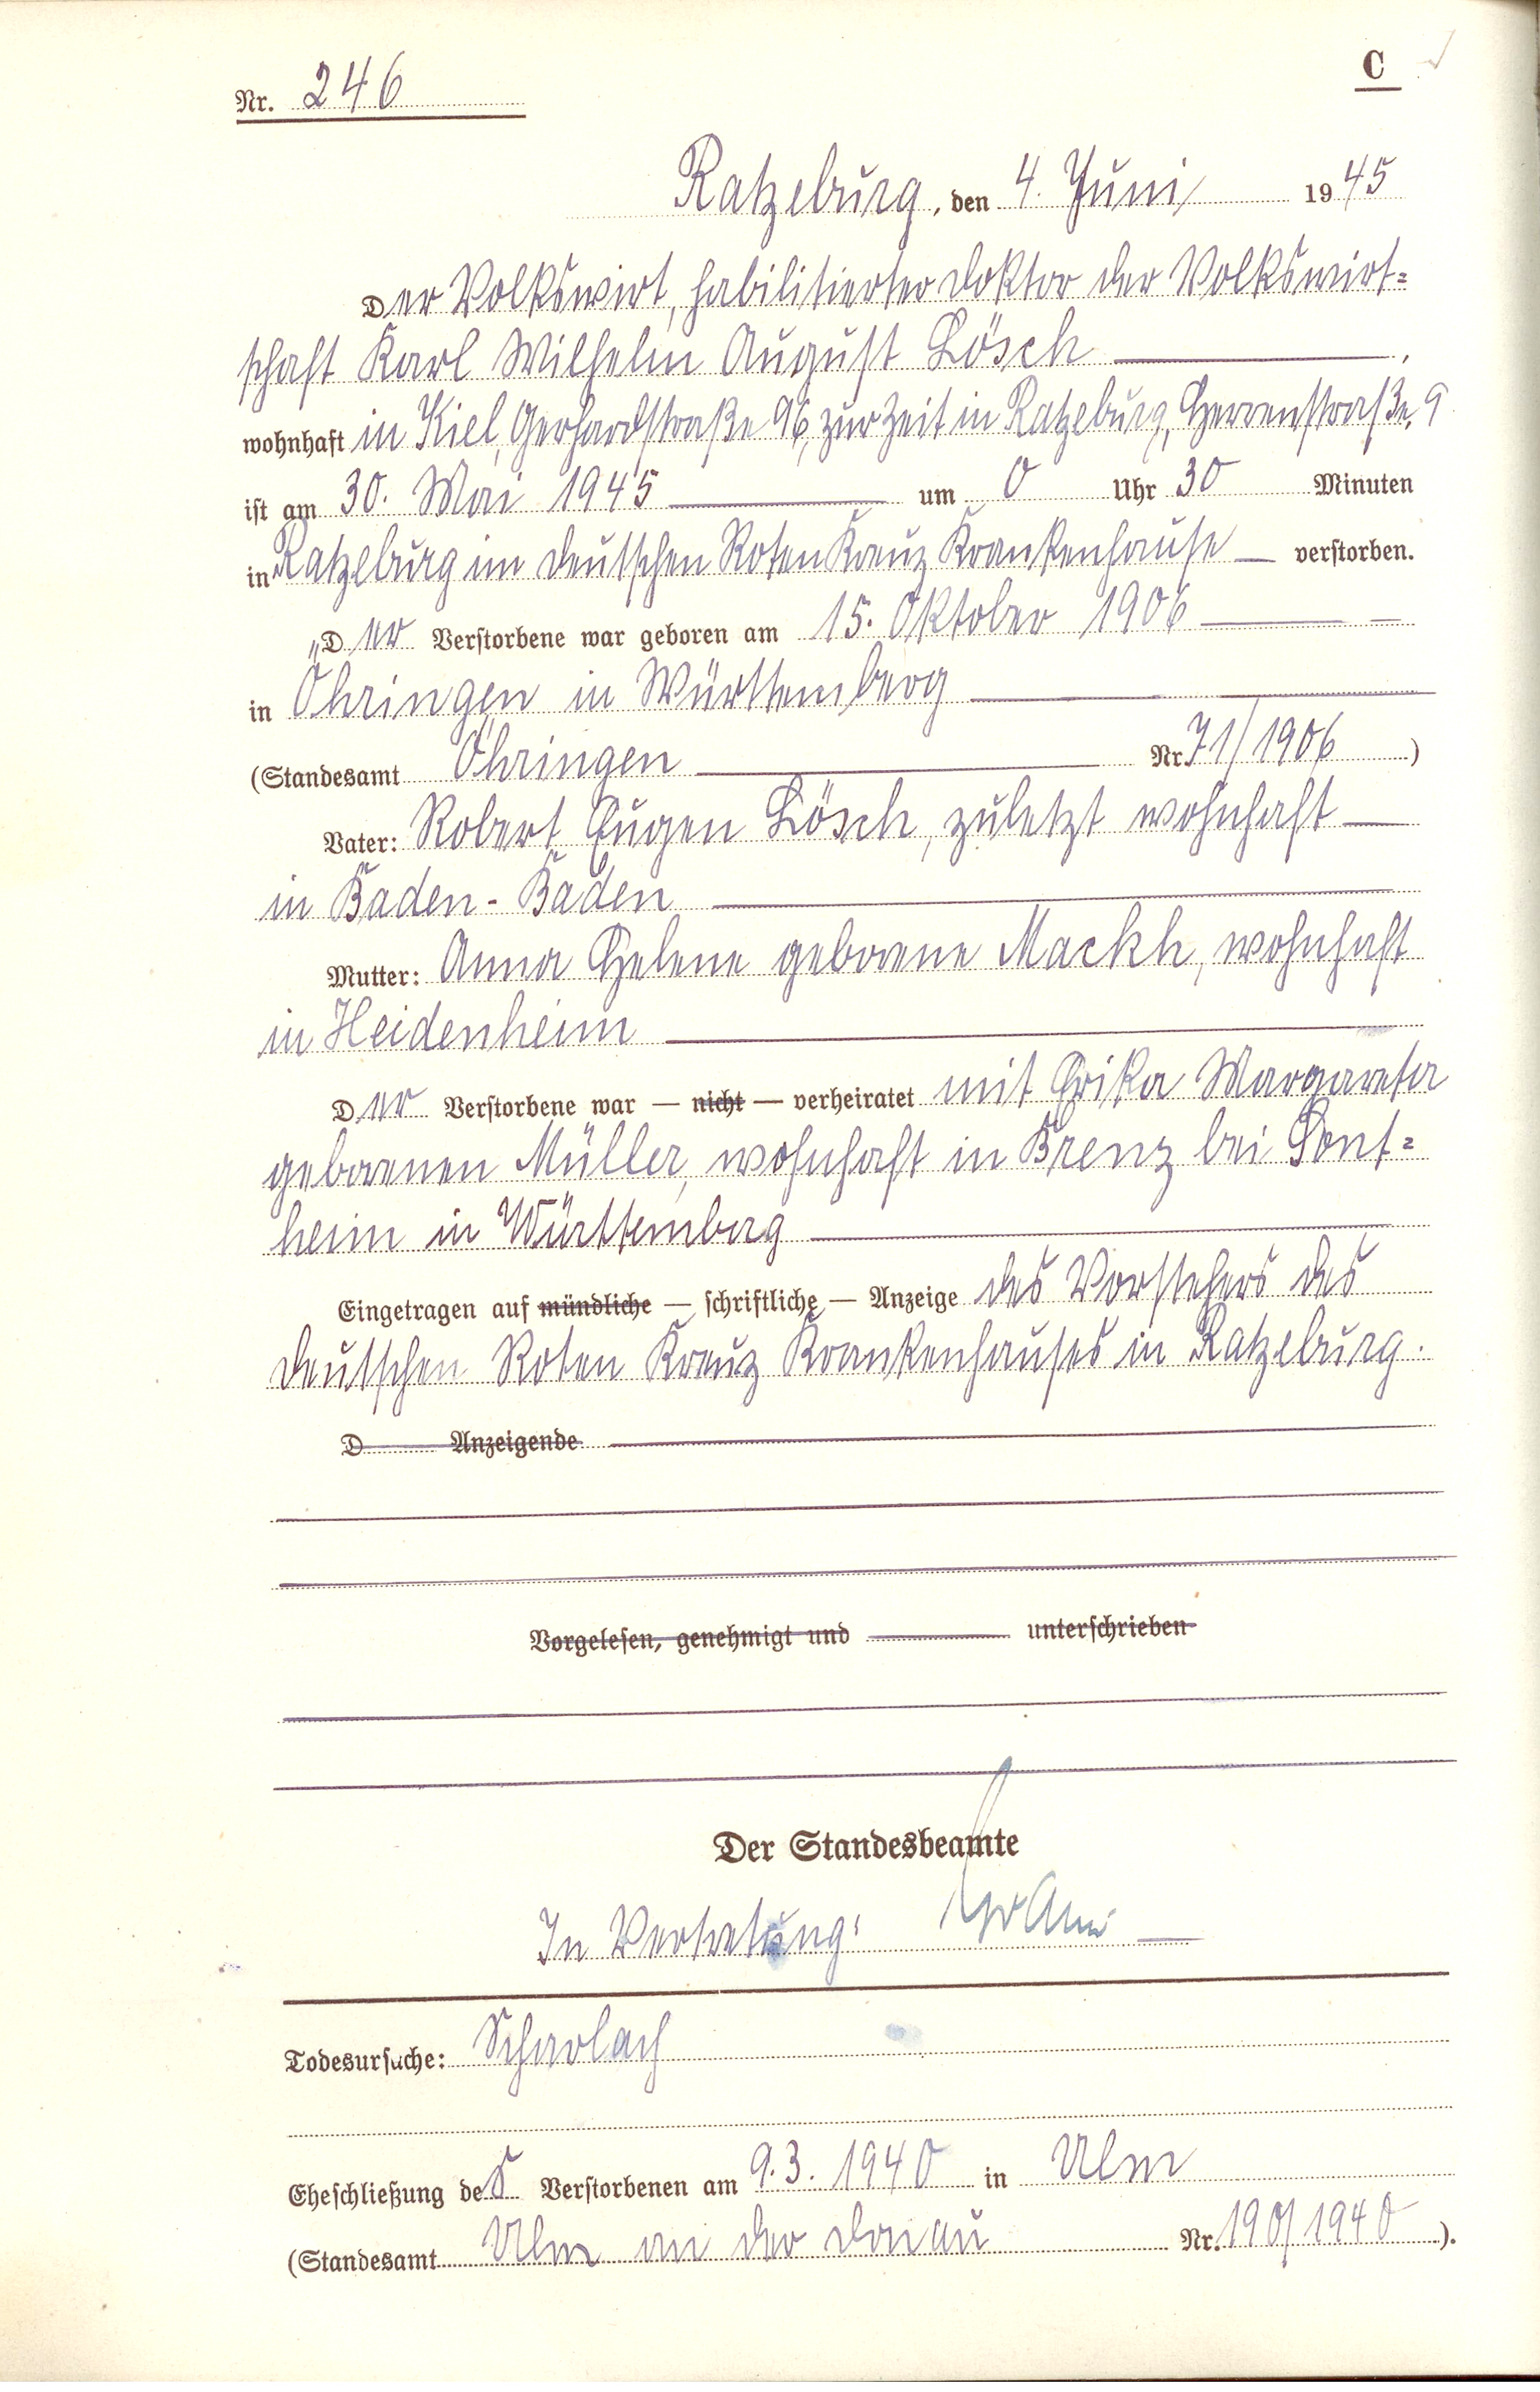 Nr. 246
C
Ratzeburg, den 4. Juni 1945
Der Volkswirt, habilitierter Doktor der Volkswirt=
schaft Karl Wilhelm August Lösch ,
wohnhaft in Kiel, Gerhardstraße 96, zur Zeit in Ratzeburg, Herrenstraße 9
ist am 30. Mai 1945 um 0 Uhr 30 Minuten
in Ratzeburg im Deutschen Roten Kreuz Krankenhause — verstorben.
Der Verstorbene war geboren am 15. Oktober 1906
in Öhringen in Württemberg
(Standesamt Öhringen Nr. 71/1906)
Vater: Robert Eugen Lösch, zuletzt wohnhaft
in Baden-Baden
Mutter: Anna Helene geborene Mackh, wohnhaft
in Heidenheim
Der Verstorbene war — nicht — verheiratet mit Erika Margareta
geborenen Müller, wohnhaft in Brenz bei Sont=
heim in Württemberg
Eingetragen auf mündliche — schriftliche — Anzeige des Vorstehers des
Deutschen Roten Kreuz Krankenhauses in Ratzeburg.
D Anzeigende
Vorgelesen, genehmigt und unterschrieben
Der Standesbeamte
In Vertretung:
Todesursache: Scharlach
Eheschließung des Verstorbenen am 9.3.1940 in Ulm
(Standesamt Ulm an der Donau Nr. 190/1940).